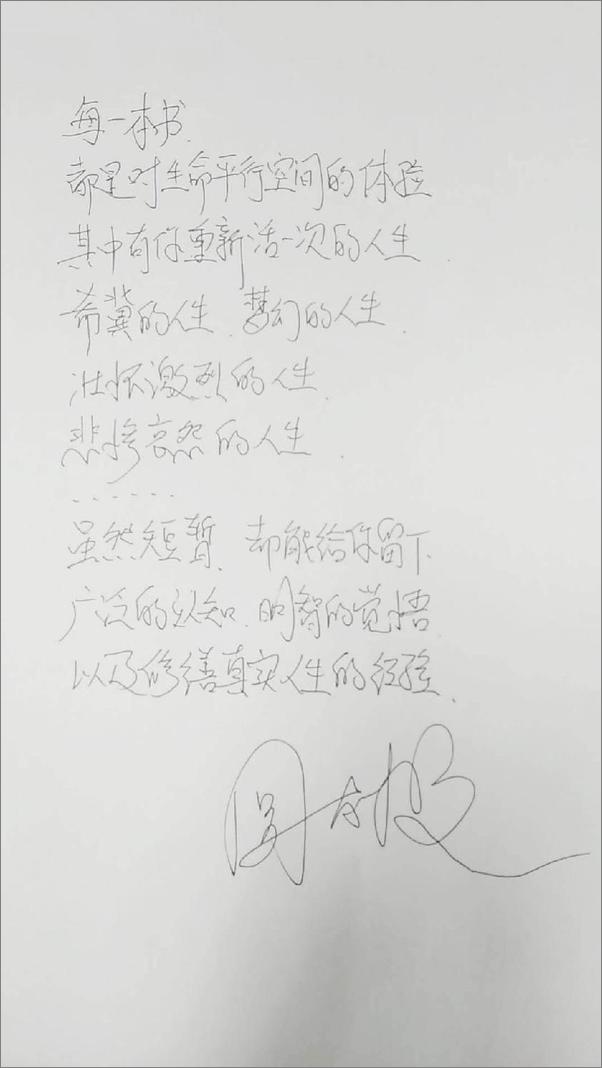 每一本书.
都是对生命平行空间的体验
其中有你重新活一次的人生.
希冀的人生.梦幻的人生.
壮怀激烈的人生.
悲惨哀怨的人生.
......
虽然短暂.却能给你留下
广泛的认知.明智的觉悟
以及修缮真实人生的经验.